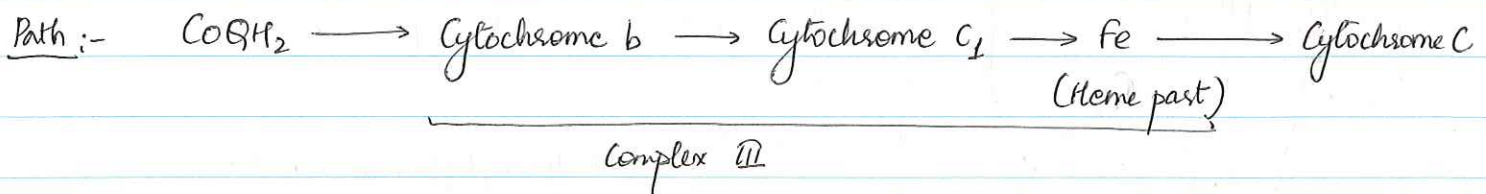 Path :- CoQH₂ → Cytochrome b → Cytochrome C₁ → Fe → Cytochrome C
(Heme part)
Complex III